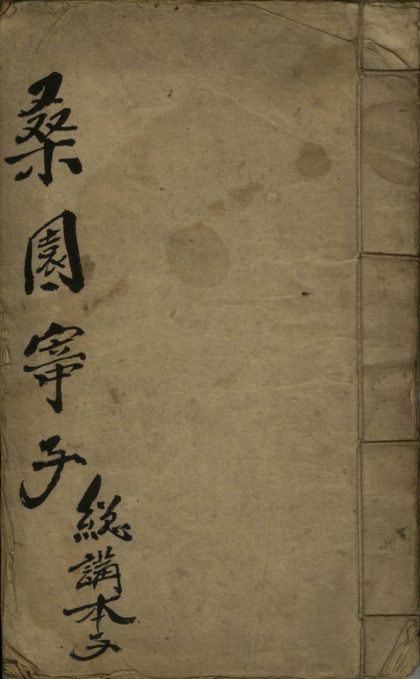 桑園寄子
總講本子